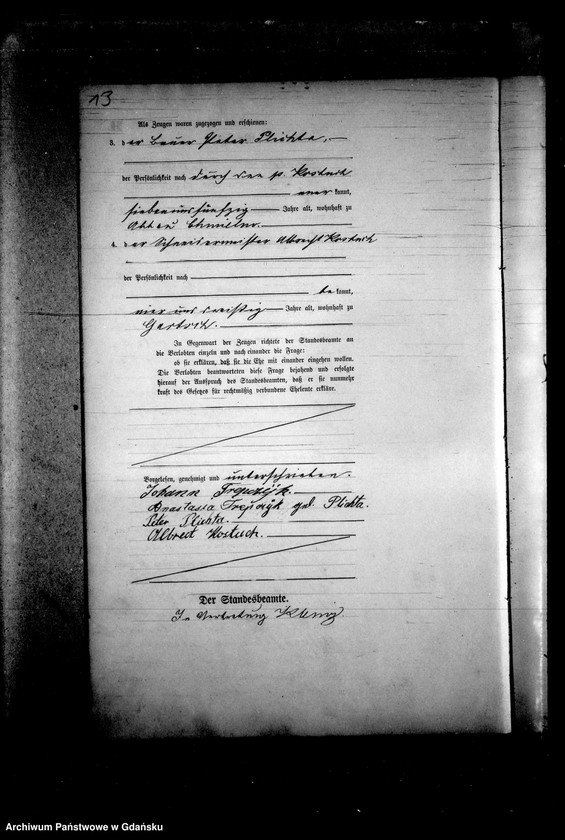 13
Als Zeugen waren zugezogen und erschienen:
3. der Bauer Peter Plichta,
der Persönlichkeit nach durch den p. Kostuch
aner kannt,
sieben und fünfzig Jahre alt, wohnhaft zu
Abbau Chmielno.
4. der Schneidermeister Albrecht Kostuch
der Persönlichkeit nach
be kannt,
vier und dreißig Jahre alt, wohnhaft zu
In Gegenwart der Zeugen richtete der Standesbeamte an
die Verlobten einzeln und nach einander die Frage:
ob sie erklären, daß sie die Ehe mit einander eingehen wollen.
Die Verlobten beantworteten diese Frage bejahend und erfolgte
hierauf der Ausspruch des Standesbeamten, daß er sie nunmehr
kraft des Gesetzes für rechtmäßig verbundene Eheleute erkläre.
Vorgelesen, genehmigt und unterschrieben.
Johann
Anastasia geb. Plichta.
Peter Plichta.
Albrecht Kostuch.
Der Standesbeamte.
In Vertretung
Archiwum Państwowe w Gdańsku